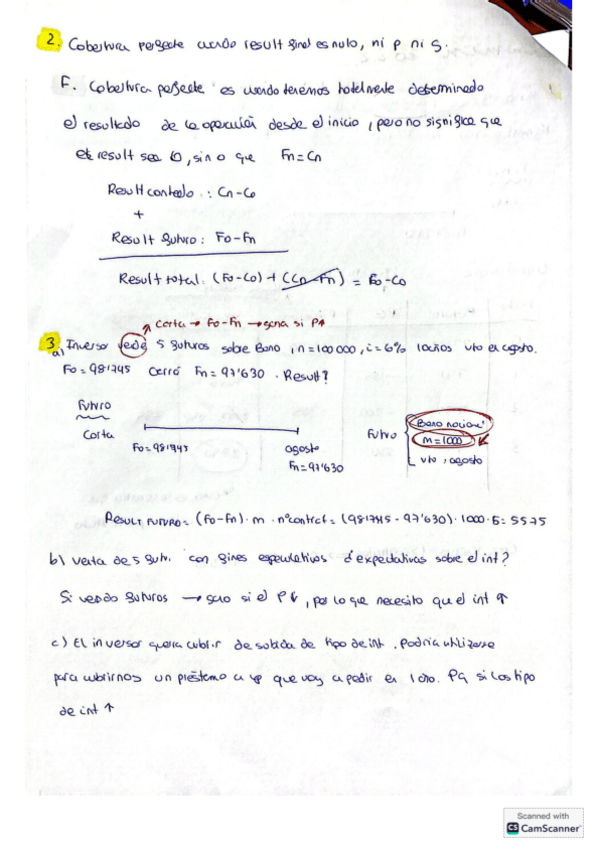 2. Cobertura perfecta cuando result final es nulo, ni p ni g.
F. Cobertura perfecta es cuando tenemos totalmente determinado
el resultado de la operación desde el inicio, pero no significa que
el result sea 0, sino que Fn=Cn
Result contado: Cn-Co
+
Result futuro: Fo-Fn
Result total: (Fo-Co)+(Cn-Fn) = Fo-Co
corta → Fo-Fn → gana si P↓
3. a) Inversor vende 5 futuros sobre Bono, n=100000, i=6% 10años vto en agosto.
Fo=98'745 cerró Fn=97'630. Result?
Futuro
Corta
Fo=98'745
agosto
Fn=97'630
Futuro
Bono nocional
m=1000
vto, agosto
Result futuro= (Fo-Fn)·m·nºcontrat= (98'745-97'630)·1000·5=5575
b) Venta de 5 futu. con fines especulativos d'expectativas sobre el int?
Si vendo futuros → gano si el P↓, por lo que necesito que el int ↑
c) El inversor quería cubrir de subida de tipo de int. Podría utilizarse
para cubrirnos un préstamo a vp que voy a pedir en 1 año. Pq si los tipo
de int ↑
Scanned with
CS CamScanner